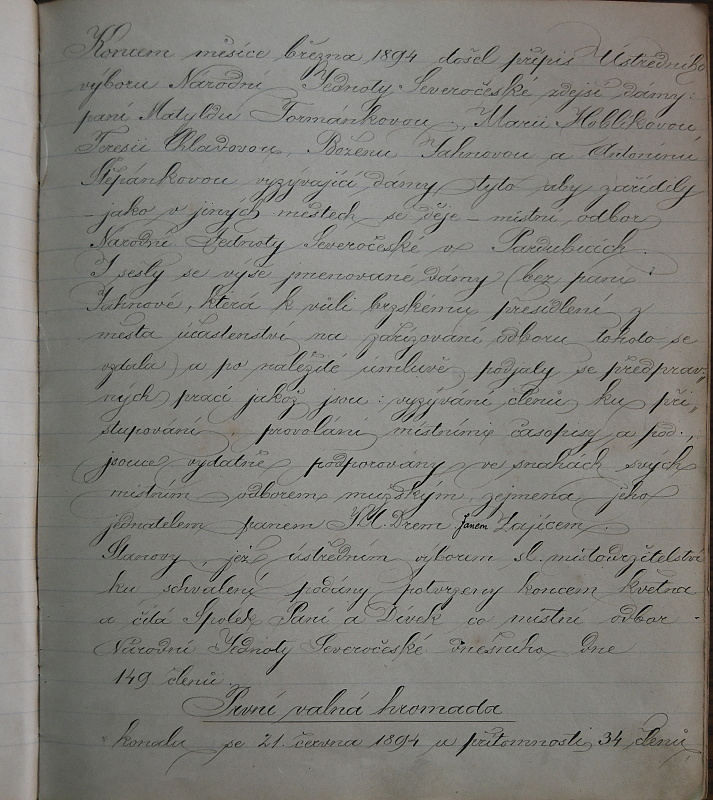 Koncem měsíce března 1894 došel přípis Ústředního
výboru Národní Jednoty Severočeské zdejší dámy:
paní Matyldu Formánkovou, Marii Hoblíkovou
Teresii Chladovou, Boženu Jahnovou a Antonínu
Štěpánkovou vyzývající dámy tyto aby zařídily
– jako v jiných městech se děje – místní odbor
Národní Jednoty Severočeské v Pardubicích.
I sešly se výše jmenované dámy (bez paní
Jahnové, která k vůli brzskému přesídlení z
města účastenství na zařizování odboru tohoto se
vzdala) a po náležité úmluvě podjaly se předprav„
ných prací jakož jsou: vyzývání členů ku při„
stupování provolání místními časopisy a pod.,
jsouce vydatně podporovány ve snahách svých
místním odborem mužským, zejmena jeho
jednatelem panem Drem Janem Zajícem.
Stanovy, jež ústředním výborem sl. místodržitelství
ku schválení podány potvrzeny koncem května
a čítá Spolek Paní a Dívek co místní odbor
Národní Jednoty Severočeské dnešního dne
149 členů.
První valná hromada
konala se 21. června 1894 u přítomnosti 34 členů